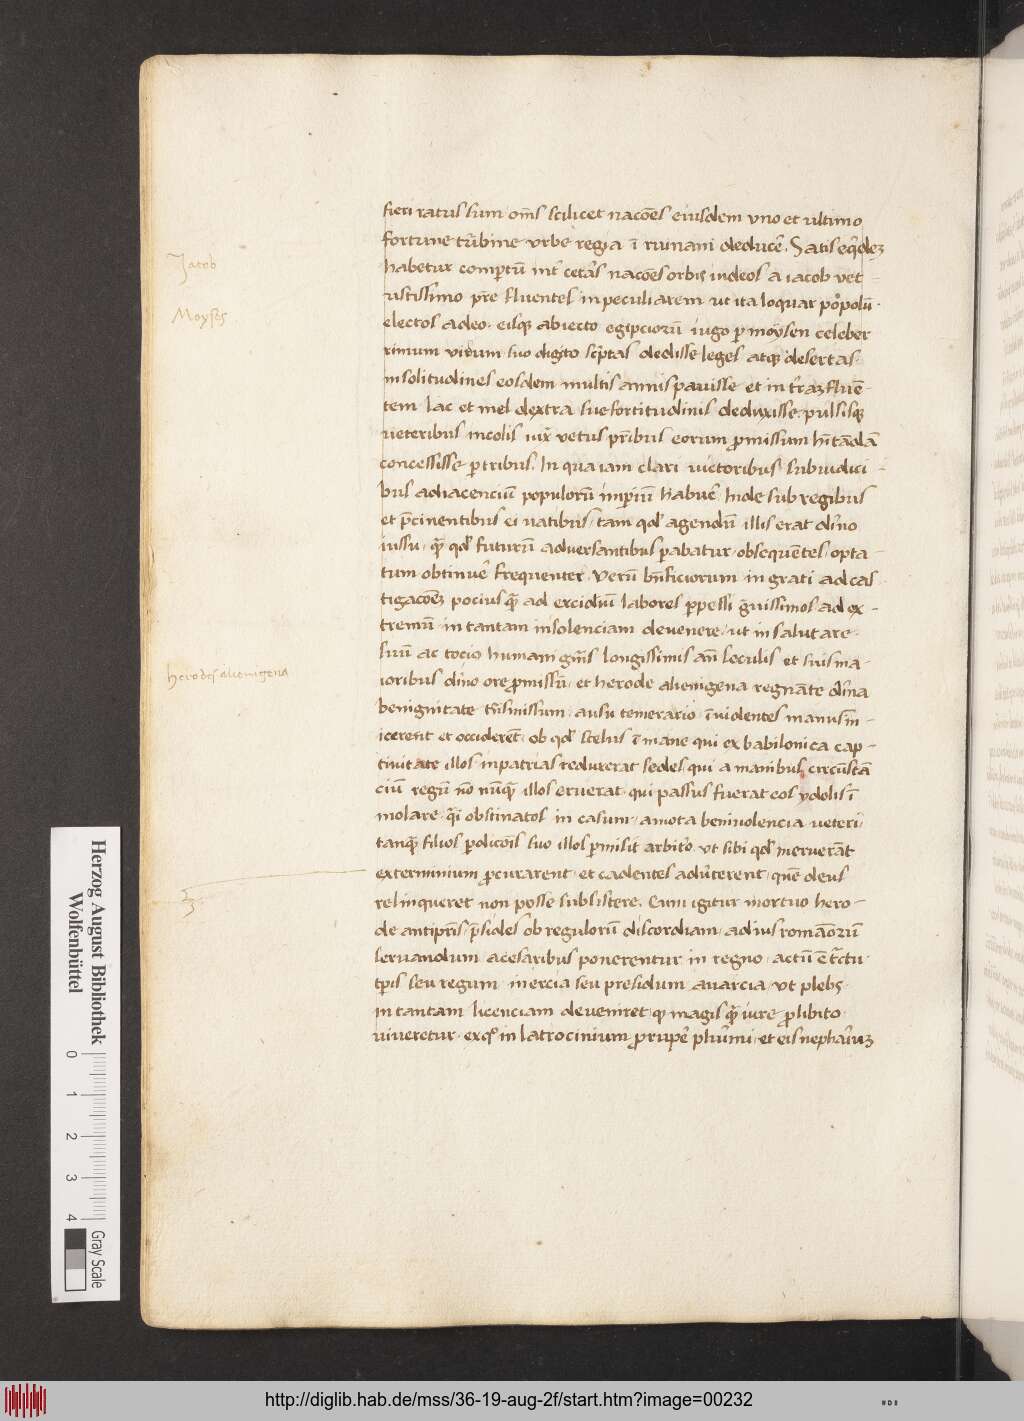 Jacob
Moyses
herodes alienigena
fieri ratus sum om̅s scilicet nacōes eiusdem uno et ultimo
fortune tu̅bine urbe regia ī ruinam deducē. Satis eq̅dez
habetur compertū int̄ cetās nacōes orbis iudeos a iacob vet
ustissimo pr̄e fluentes in peculiarem ut ita loquar pōpolū
electos adeo. eisq̢ abiecto egipciorū iugo p̱ moysen celeber
rimum virum suo digito sc̅ptas dedisse leges atq̢ desertas
in solitudines eosdem multis annis pavisse et in t̄raz fluē-
tem lac et mel dextra sue fortitudinis deduxisse. pulsisq̢
veteribus incolis iux̄ vetus pr̄ibus eorum p̱missum hītādā
concessisse p̱ tribus. In qua iam clari victoribus sub iudici
bus adiacenciū populorū imp̱iū habuē. Inde sub regibus
et p̄cinentibus ei vatibus tam qd̄ agendū illis erat dīno
iussu. q̄ qd̄ futurū adversantibus p̱abatur. obsequētes opta-
tum obtinuē frequenter. Verū bn̄ficiorum ingrati ad cas
tigacōez pocius q̄ ad excidiū labores p̱pessi ḡuissimos ad ex-
tremū in tantam insolenciam devenere. ut in salutare
suū ac tocio humani gn̄is longissimis an̄ seculis et suis ma-
ioribus dīno ore p̱missū. et herode alienigena regnāte dīna
benignitate tn̄smissum. ausu temerario īvidentes manus in-
icerent et occiderēt. ob qd̄ scelus īmane qui ex babilonica cap-
tivitate illos in patrias reduxerat sedes. qui a manibus circūstā
ciū regū nō nūq̄ illos eruerat. qui passus fuerat eos ydolis ī
molare. q̄i obstinatos in casum. amota benivolencia veteri
tanq̄ filios suo illos p̱misit arbit̄o. ut sibi qd̄ meruerāt
exterminium p̱curarent. et cadentes adv̄terent. quē deus
relinqueret non posse subsistere. Cum igitur mortuo hero-
de antip̄ris p̄sides ob regulorū discordiam. ad ius romāorū
servandum. a cesaribus ponerentur in regno. actū ē
tp̱is seu regum inercia seu presidum avarcia. ut plebs
in tantam licenciam deveniret. q̱ magis q̄ iure p̱ libito
viveretur. ex q̊ in latrocinium p̱rupē plūmi. et eis nephariuz
Herzog August Bibliothek
Wolfenbüttel
0 1 2 3 4
Gray Scale
http://diglib.hab.de/mss/36-19-aug-2f/start.htm?image=00232